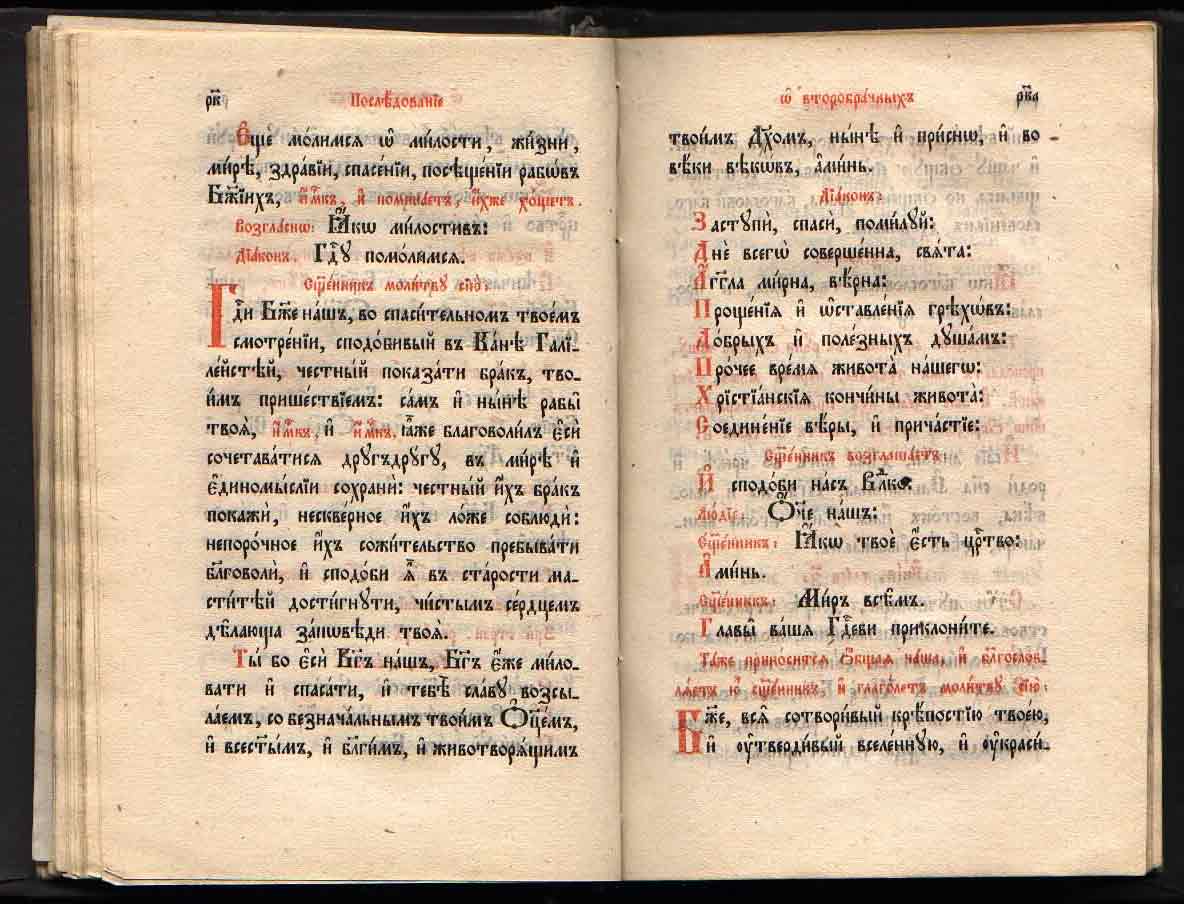 рк҃
Послѣ́дованїе
Є҆щѐ мо́лимся ѡ҆ ми́лости, жи́зни,
ми́рѣ, здра́вїи, спасе́нїи, посѣще́нїи рабѡ́въ
Бж҃їихъ, и҆м҃къ, и҆ помина́етъ, и҆̀хже хо́щетъ.
Возгла́снѡ: Ꙗ҆́кѡ ми́лостивъ:
Дїа́конъ. Гдⷭ҇у помо́лимся.
Сщ҃е́нникъ моли́тву сїю̀:
Гдⷭ҇и Бж҃е на́шъ, во спаси́тельномъ твое́мъ
смотре́нїи, сподо́бивый въ Ка́нѣ Галї-
ле́йстѣй, че́стный показа́ти бра́къ, тво-
и́мъ прише́ствїемъ: са́мъ и҆ ны́нѣ рабы̑
твоѧ̑, и҆м҃къ, и҆ и҆м҃къ, ꙗ҆̀же благоволи́лъ є҆сѝ
сочетава́тися дру́гъдру́гу, въ ми́рѣ и҆
є҆диномы́слїи сохранѝ: че́стный и҆́хъ бра́къ
покажѝ, нескве́рное и҆́хъ ло́же соблюдѝ:
непоро́чное и҆́хъ сожи́тельство пребыва́ти
бл҃говолѝ, и҆ сподо́би ѧ҆̀ въ ста́рости ма-
сти́тѣй дости́гнути, чи́стымъ се́рдцемъ
дѣ́лающа за́повѣди твоѧ̑.
Ты́ бо є҆сѝ Бг҃ъ на́шъ, Бг҃ъ є҆́же ми́ло-
вати и҆ спаса́ти, и҆ тебѣ̀ сла́ву возсы-
ла́емъ, со безнача́льнымъ твои́мъ Ѻ҆ц҃е́мъ,
и҆ всест҃ы́мъ, и҆ бл҃ги́мъ, и҆ животворѧ́щимъ
ѡ҆ второбра́чныхъ
рк҃а
твои́мъ Дх҃омъ, ны́нѣ и҆ при́снѡ, и҆ во
вѣ́ки вѣкѡ́въ, а҆ми́нь.
Дїа́конъ:
Заступѝ, спасѝ, поми́луй:
Днѐ всегѡ̀ соверше́нна, свѧ́та:
А҆́гг҃ла ми́рна, вѣ́рна:
Проще́нїѧ и҆ ѡ҆ставле́нїѧ грѣхѡ́въ:
До́брыхъ и҆ поле́зныхъ душа́мъ:
Про́чее вре́мѧ живота̀ на́шегѡ:
Хрїстїа́нскїѧ кончи́ны живота̀:
Соедине́нїе вѣ́ры, и҆ прича́стїе:
Сщ҃е́нникъ возглаша́етъ:
И҆ сподо́би на́съ Влⷣко
Лю́дїе: Ѻ҆́ч҃е на́шъ:
Сщ҃е́нникъ: Ꙗ҆́кѡ твоѐ є҆́сть црⷭ҇тво:
А҆ми́нь.
Сщ҃е́нникъ: Ми́ръ всѣ̑мъ.
Главы̑ ва́шѧ Гдⷭ҇еви приклони́те.
Та́же прино́сится ѻ҆́бщая ча́ша, и҆ бл҃гослов-
лѧ́етъ ю҆̀ сщ҃е́нникъ, и҆ глаго́летъ моли́тву сїю̀:
Бж҃е, всѧ̑ сотвори́вый крѣ́постїю твое́ю,
и҆ ᲂу҆тверди́вый вселе́нную, и҆ ᲂу҆краси́-